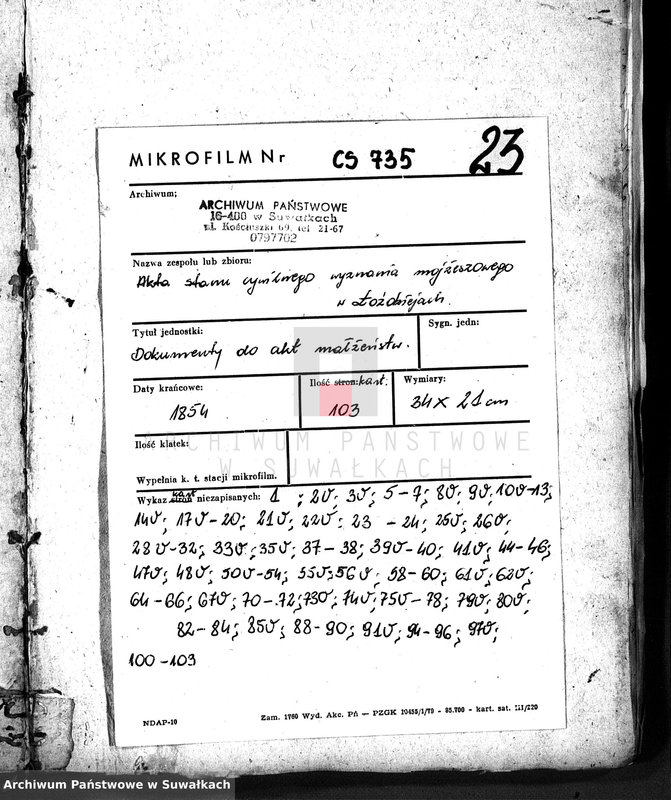 MIKROFILM Nr CS 735 23
Archiwum;
ARCHIWUM PAŃSTWOWE
16-400 w Suwałkach
ul. Kościuszki 69, tel 21-67
0797702
Nazwa zespołu lub zbioru:
Akta stanu cywilnego wyznania mojżeszowego
w Łoździejach.
Tytuł jednostki: Sygn. jedn:
Dokumenty do akt małżeństw.
Daty krańcowe: Ilość stron: kart. Wymiary:
1854 103 34 x 21 cm
ARCHIWUM PAŃSTWOWE
W SUWAŁKACH
Ilość klatek:
Wypełnia k. t. stacji mikrofilm.
Wykaz stron kart niezapisanych: 1 ; 2v; 3v; 5-7; 8v; 9v; 10v-13;
14v; 17v-20; 21v; 22v; 23-24; 25v; 26v;
28v-32; 33v; 35v; 37-38; 39v-40; 41v; 44-46;
47v; 48v; 50v-54; 55v; 56v; 58-60; 61v; 62v;
64-66; 67v; 70-72; 73v; 74v; 75v-78; 79v; 80v;
82-84; 85v; 88-90; 91v; 94-96; 97v;
100-103
NDAP-10 Zam. 1760 Wyd. Akc. Pń — PZGK 10455/1/79 - 85.700 - kart. sat. III/220
Archiwum Państwowe w Suwałkach